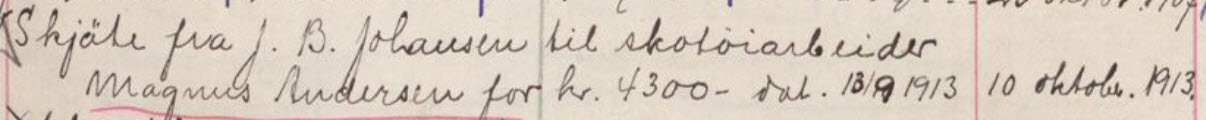 Skjøte fra J. B. Johansen til skotöiarbeider
Magnus Andersen for kr. 4300- dat. 13/9 1913 10 oktober. 1913.